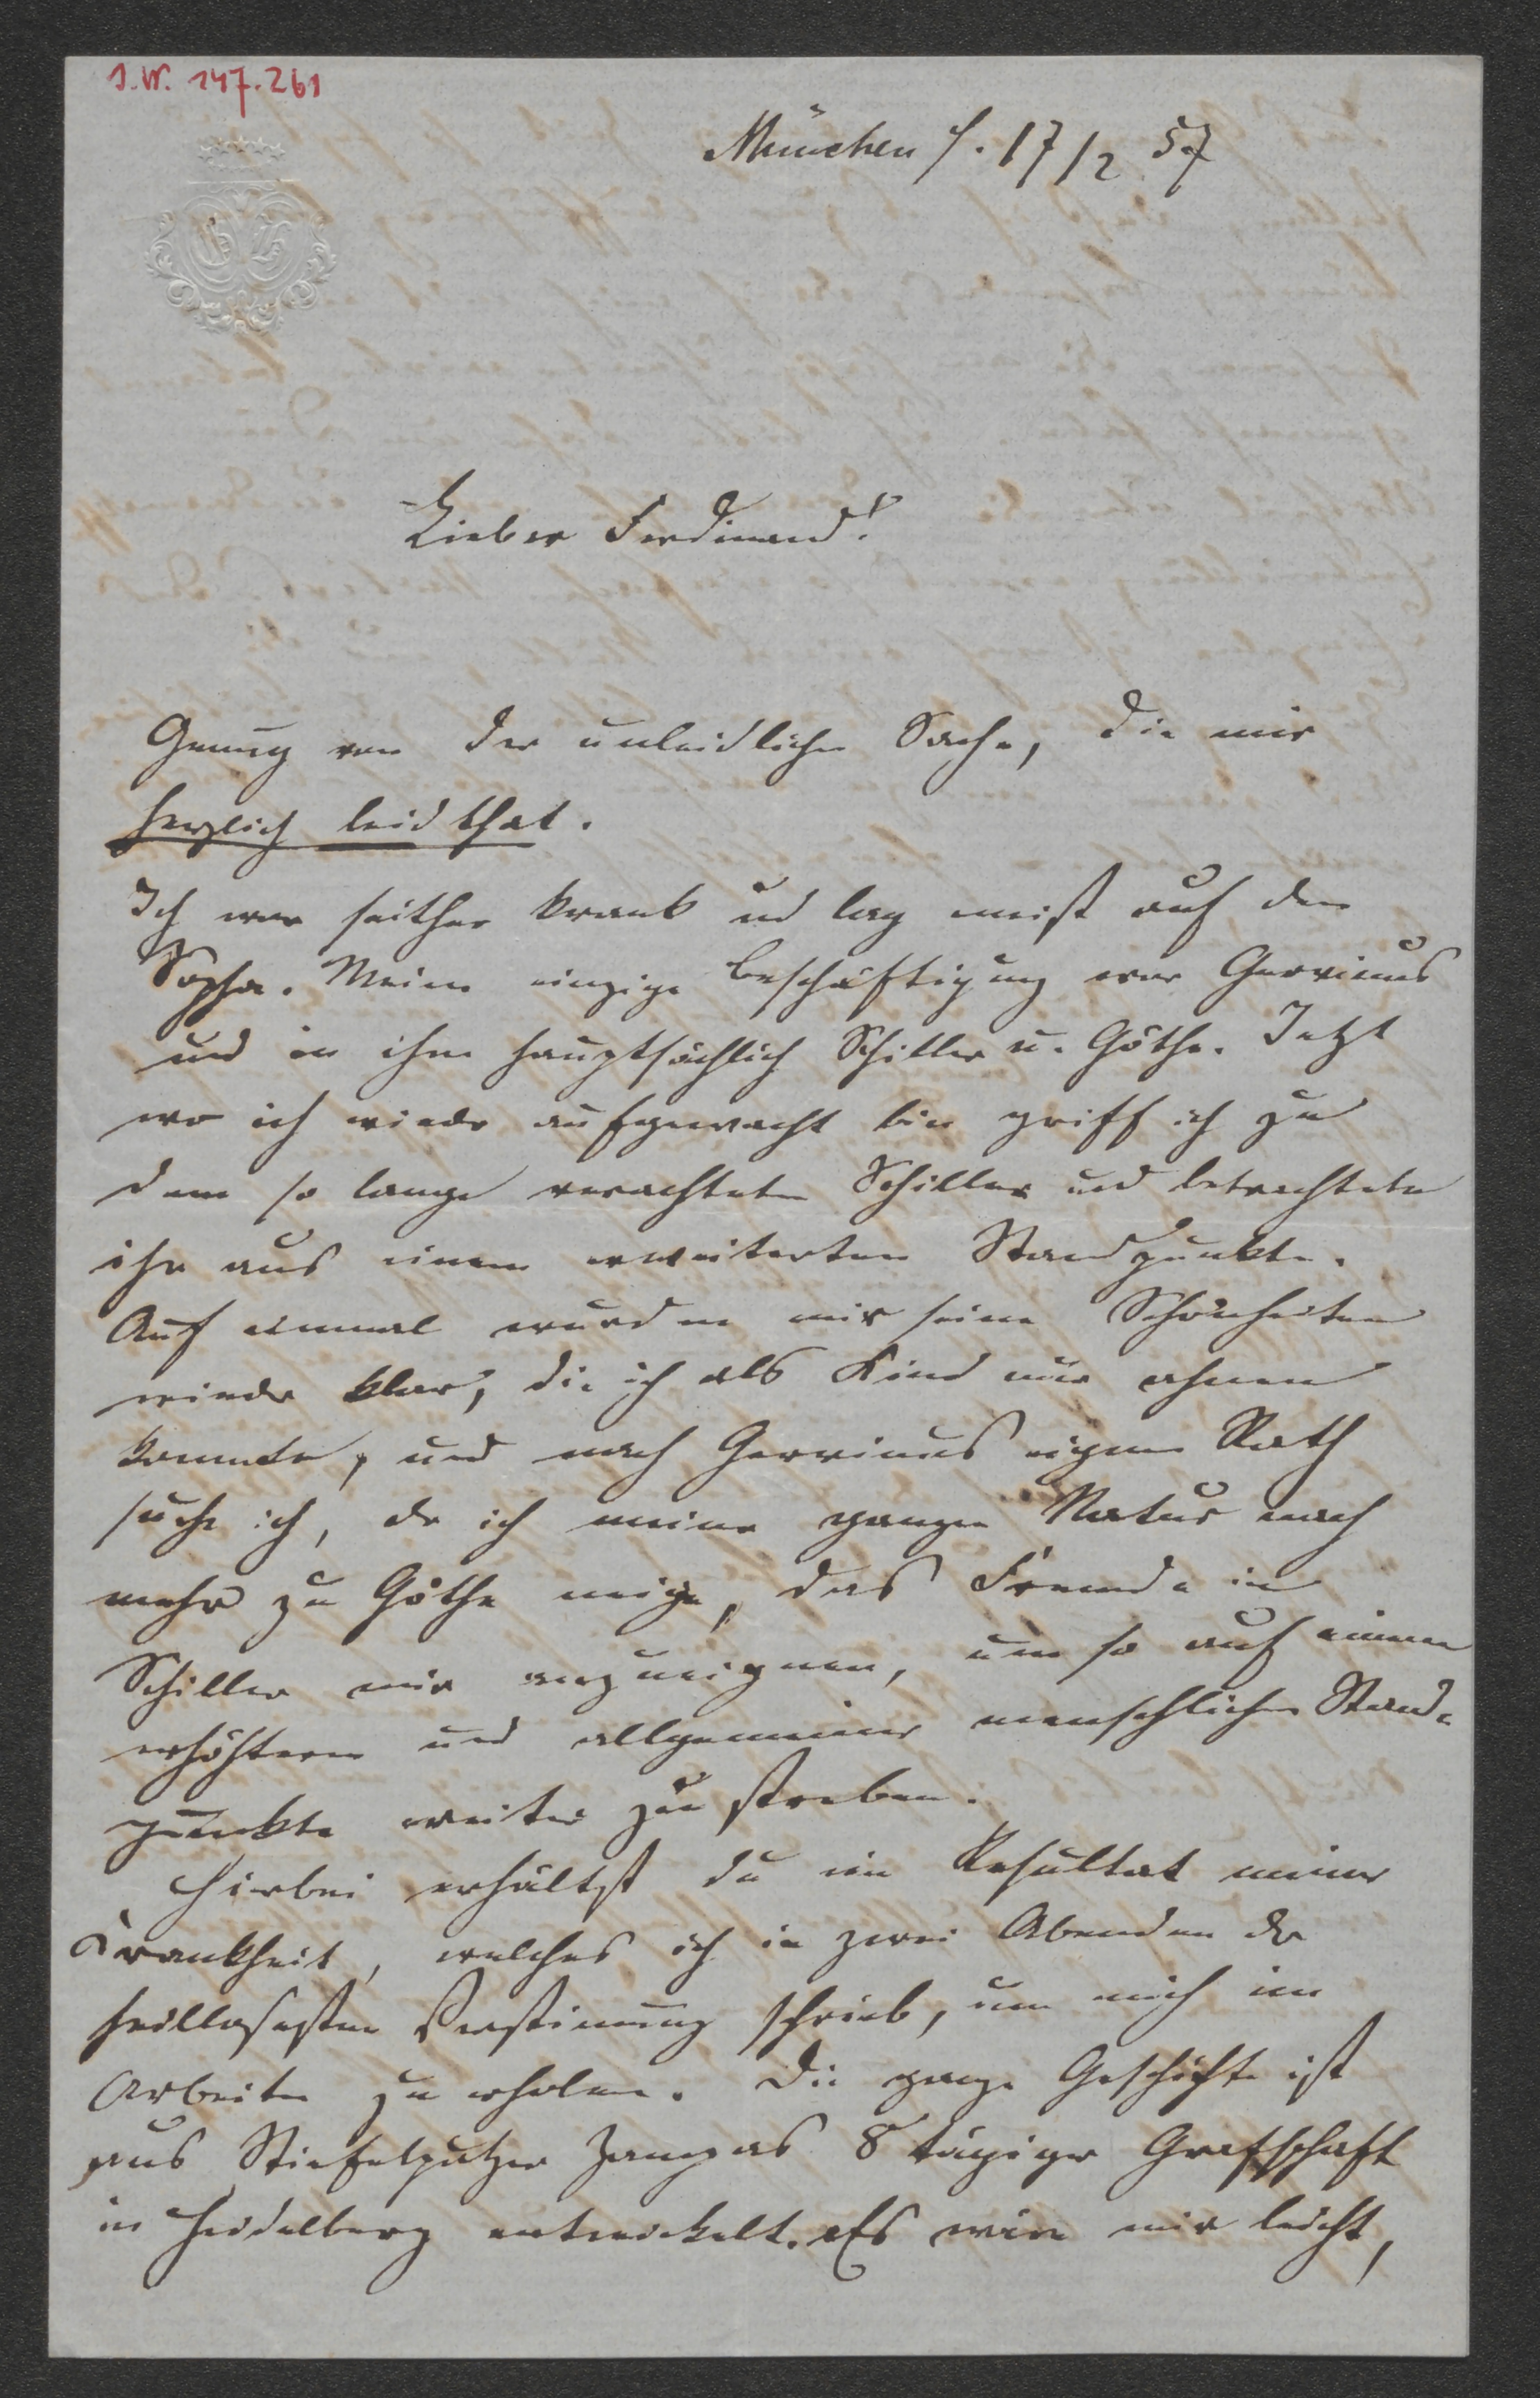 J.W. 147.261
München /. 17/2 57
Lieber Ferdinand!
Genug von der unleidlichen Sache, die mir
herzlich leid that.
Ich war seither krank und lag meist auf dem
Sopha. Meine einzige Beschäftigung war Gervinus
und in ihm hauptsächlich Schiller u. Göthe. Jetzt
wo ich wieder aufgewacht bin griff ich zu
dem so lange verachteten Schiller und betrachtete
ihn aus einem erweiterten Standpunkte.
Auf einmal wurden mir seine Schönheiten
wieder klar, die ich als Kind nur ahnen
konnte, und nach Gervinus eignem Rath
suche ich, da ich meiner ganzen Natur nach
mehr zu Göthe neige, das Fremde in
Schiller mir anzueignen, um so auf einem
erhöhteren und allgemeiner menschlichen Stand-
punkte weiter zu streben.
Hierbei erhältst du ein Resultat meiner
Krankheit, welches ich in zwei Abenden der
heillosesten Verstimmung schrieb, um mich im
Arbeiten zu erholen. Die ganze Geschichte ist
aus Stiefelputzer 8 tägiger Grafschaft
in Heidelberg entwickelt. Es wäre mir leicht,